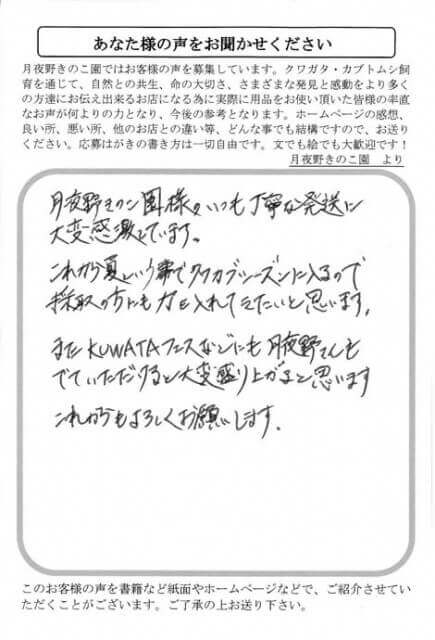 あなた様の声をお聞かせください
月夜野きのこ園ではお客様の声を募集しています。クワガタ・カブトムシ飼
育を通じて、自然との共生、命の大切さ、さまざまな発見と感動をより多く
の方達にお伝え出来るお店になる為に実際に用品をお使い頂いた皆様の率直
なお声が何よりの力となり、今後の参考となります。ホームページの感想、
良い所、悪い所、他のお店との違い等、どんな事でも結構ですので、お送り
ください。応募はがきの書き方は一切自由です。文でも絵でも大歓迎です！
月夜野きのこ園　より
月夜野きのこ園様、いつも丁寧な発送に
大変感激しています。
これから夏という事でクワカブシーズンに入るので
採取の方にも力を入れて
きたいと思います。
また KUWATAフェスなどにも月夜野さんも
でていただけると大変盛り上がると思います
これからもよろしくお願いします。
このお客様の声を書籍など紙面やホームページなどで、ご紹介させてい
ただくことがございます。ご了承の上お送り下さい。